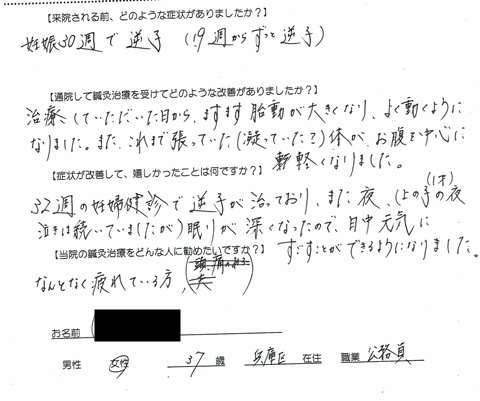 【来院される前、どのような症状がありましたか？】
妊娠30週で逆子（19週からずっと逆子）
【通院して鍼灸治療を受けてどのような改善がありましたか？】
治療していただいた日から、ますます胎動が大きくなり、よく動くように
なりました。また、これまで張っていた（凝っていた？）体が、お腹を中心に
軽くなりました。
【症状が改善して、嬉しかったことは何ですか？】
32週の妊婦健診で逆子が治っており、また夜、（上の子(1才)の夜
泣きは続いていましたが）眠りが深くなったので、日中元気に
すごすことができるようになりました。
【当院の鍼灸治療をどんな人に勧めたいですか？】
なんとなく疲れている方、
お名前
男性 女性 37 歳 兵庫区 在住 職業 公務員